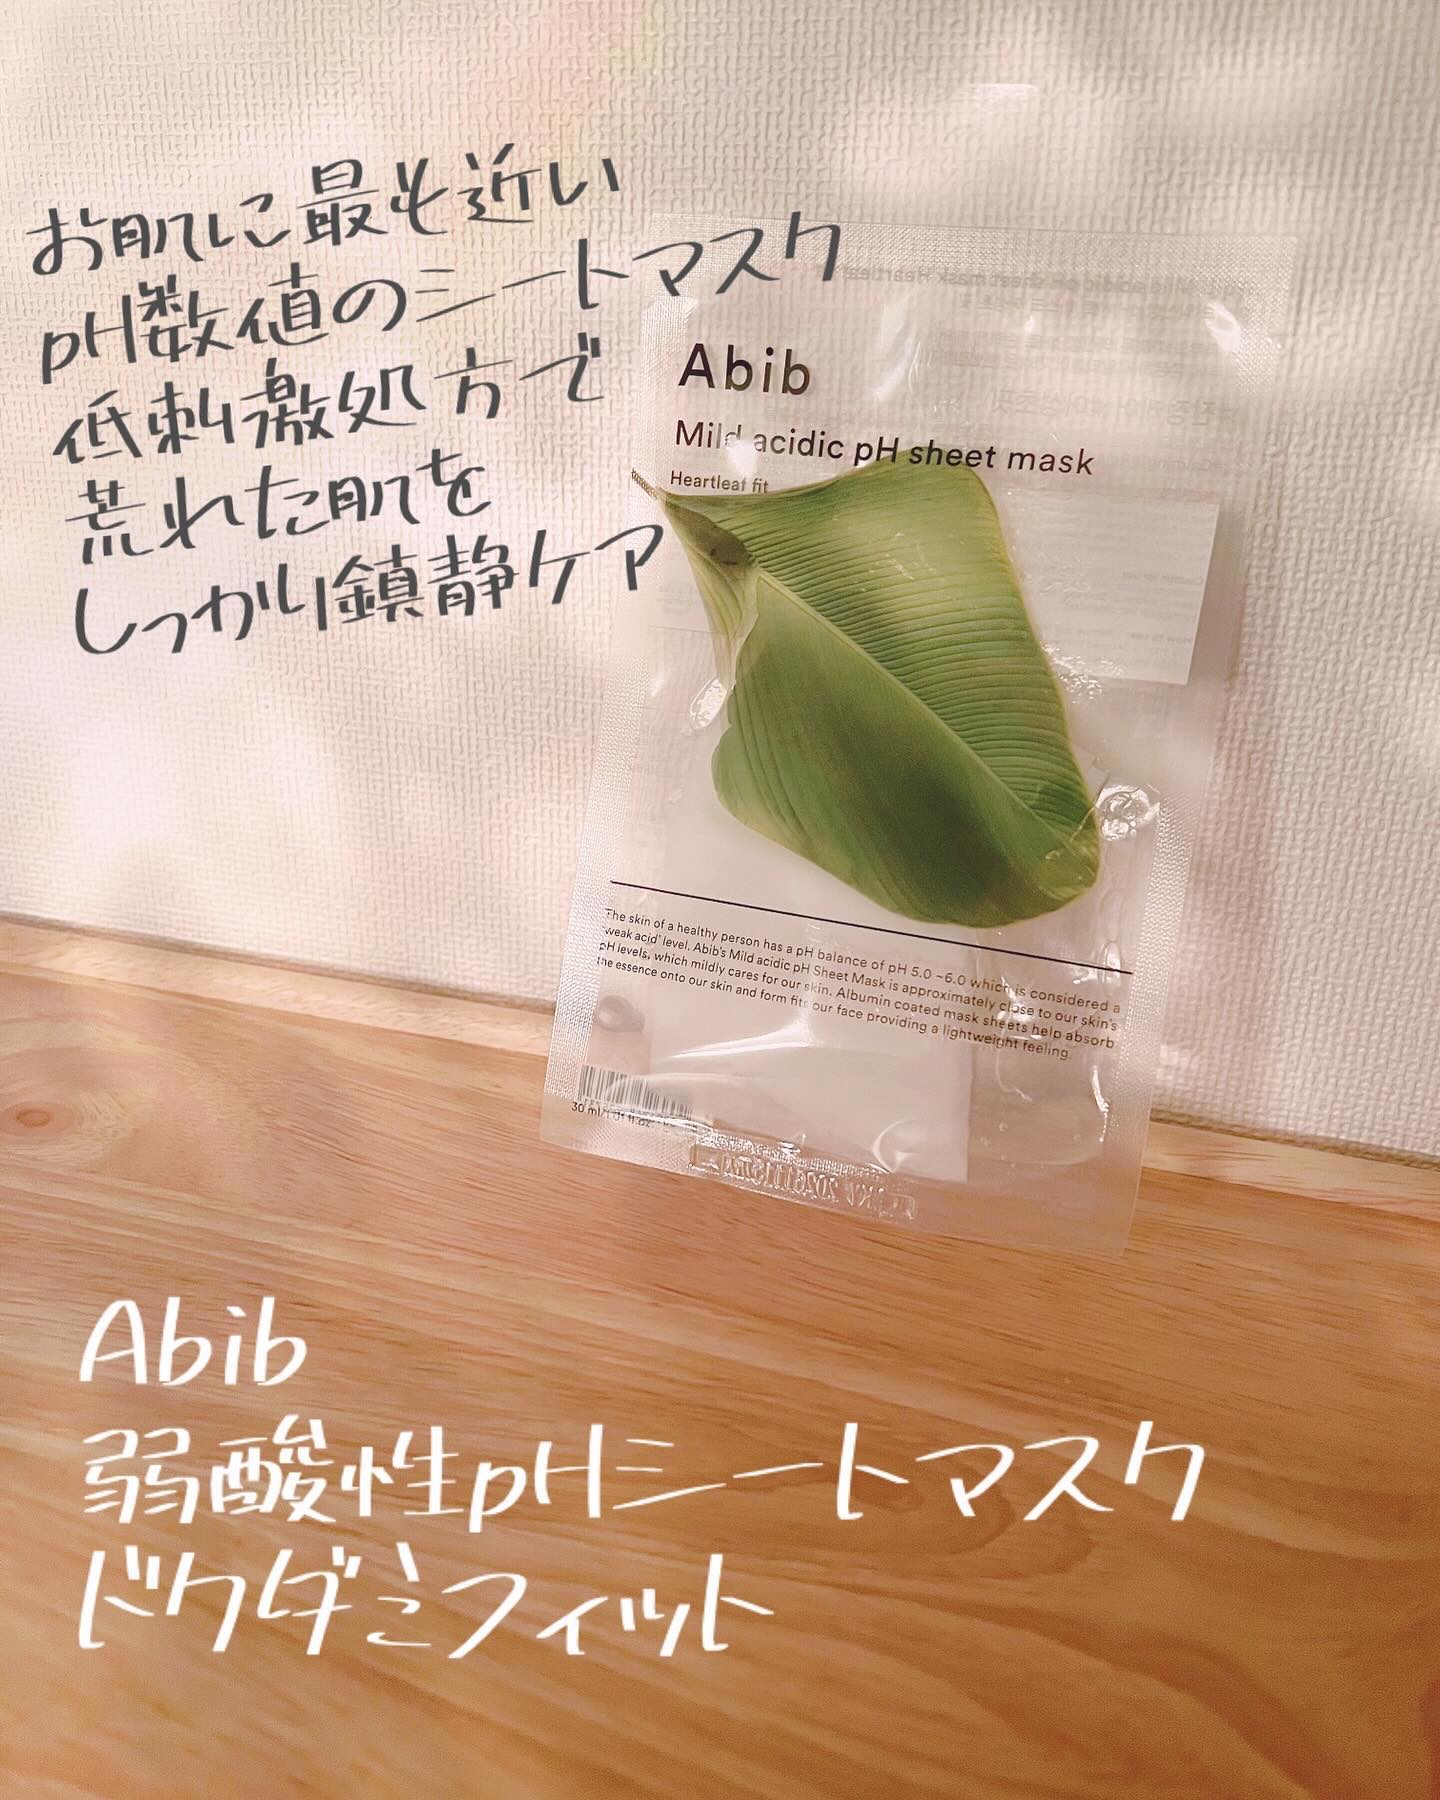 お肌に最も近い
pH数値のシートマスク
低刺激処方で
荒れた肌を
しっかり鎮静ケア
Abib
Mild acidic pH sheet mask
Heartleaf fit
The skin of a healthy person has a pH balance of pH 5.0 ~6.0 which is considered a
'weak acid' level. Abib's Mild acidic pH Sheet Mask is approximately close to our skin's
pH levels, which mildly cares for our skin. Albumin coated mask sheets help absorb
the essence onto our skin and form fits our face providing a lightweight feeling.
30 ml/1.01 fl.oz.
Abib
弱酸性pHシートマスク
ドクダミフィット